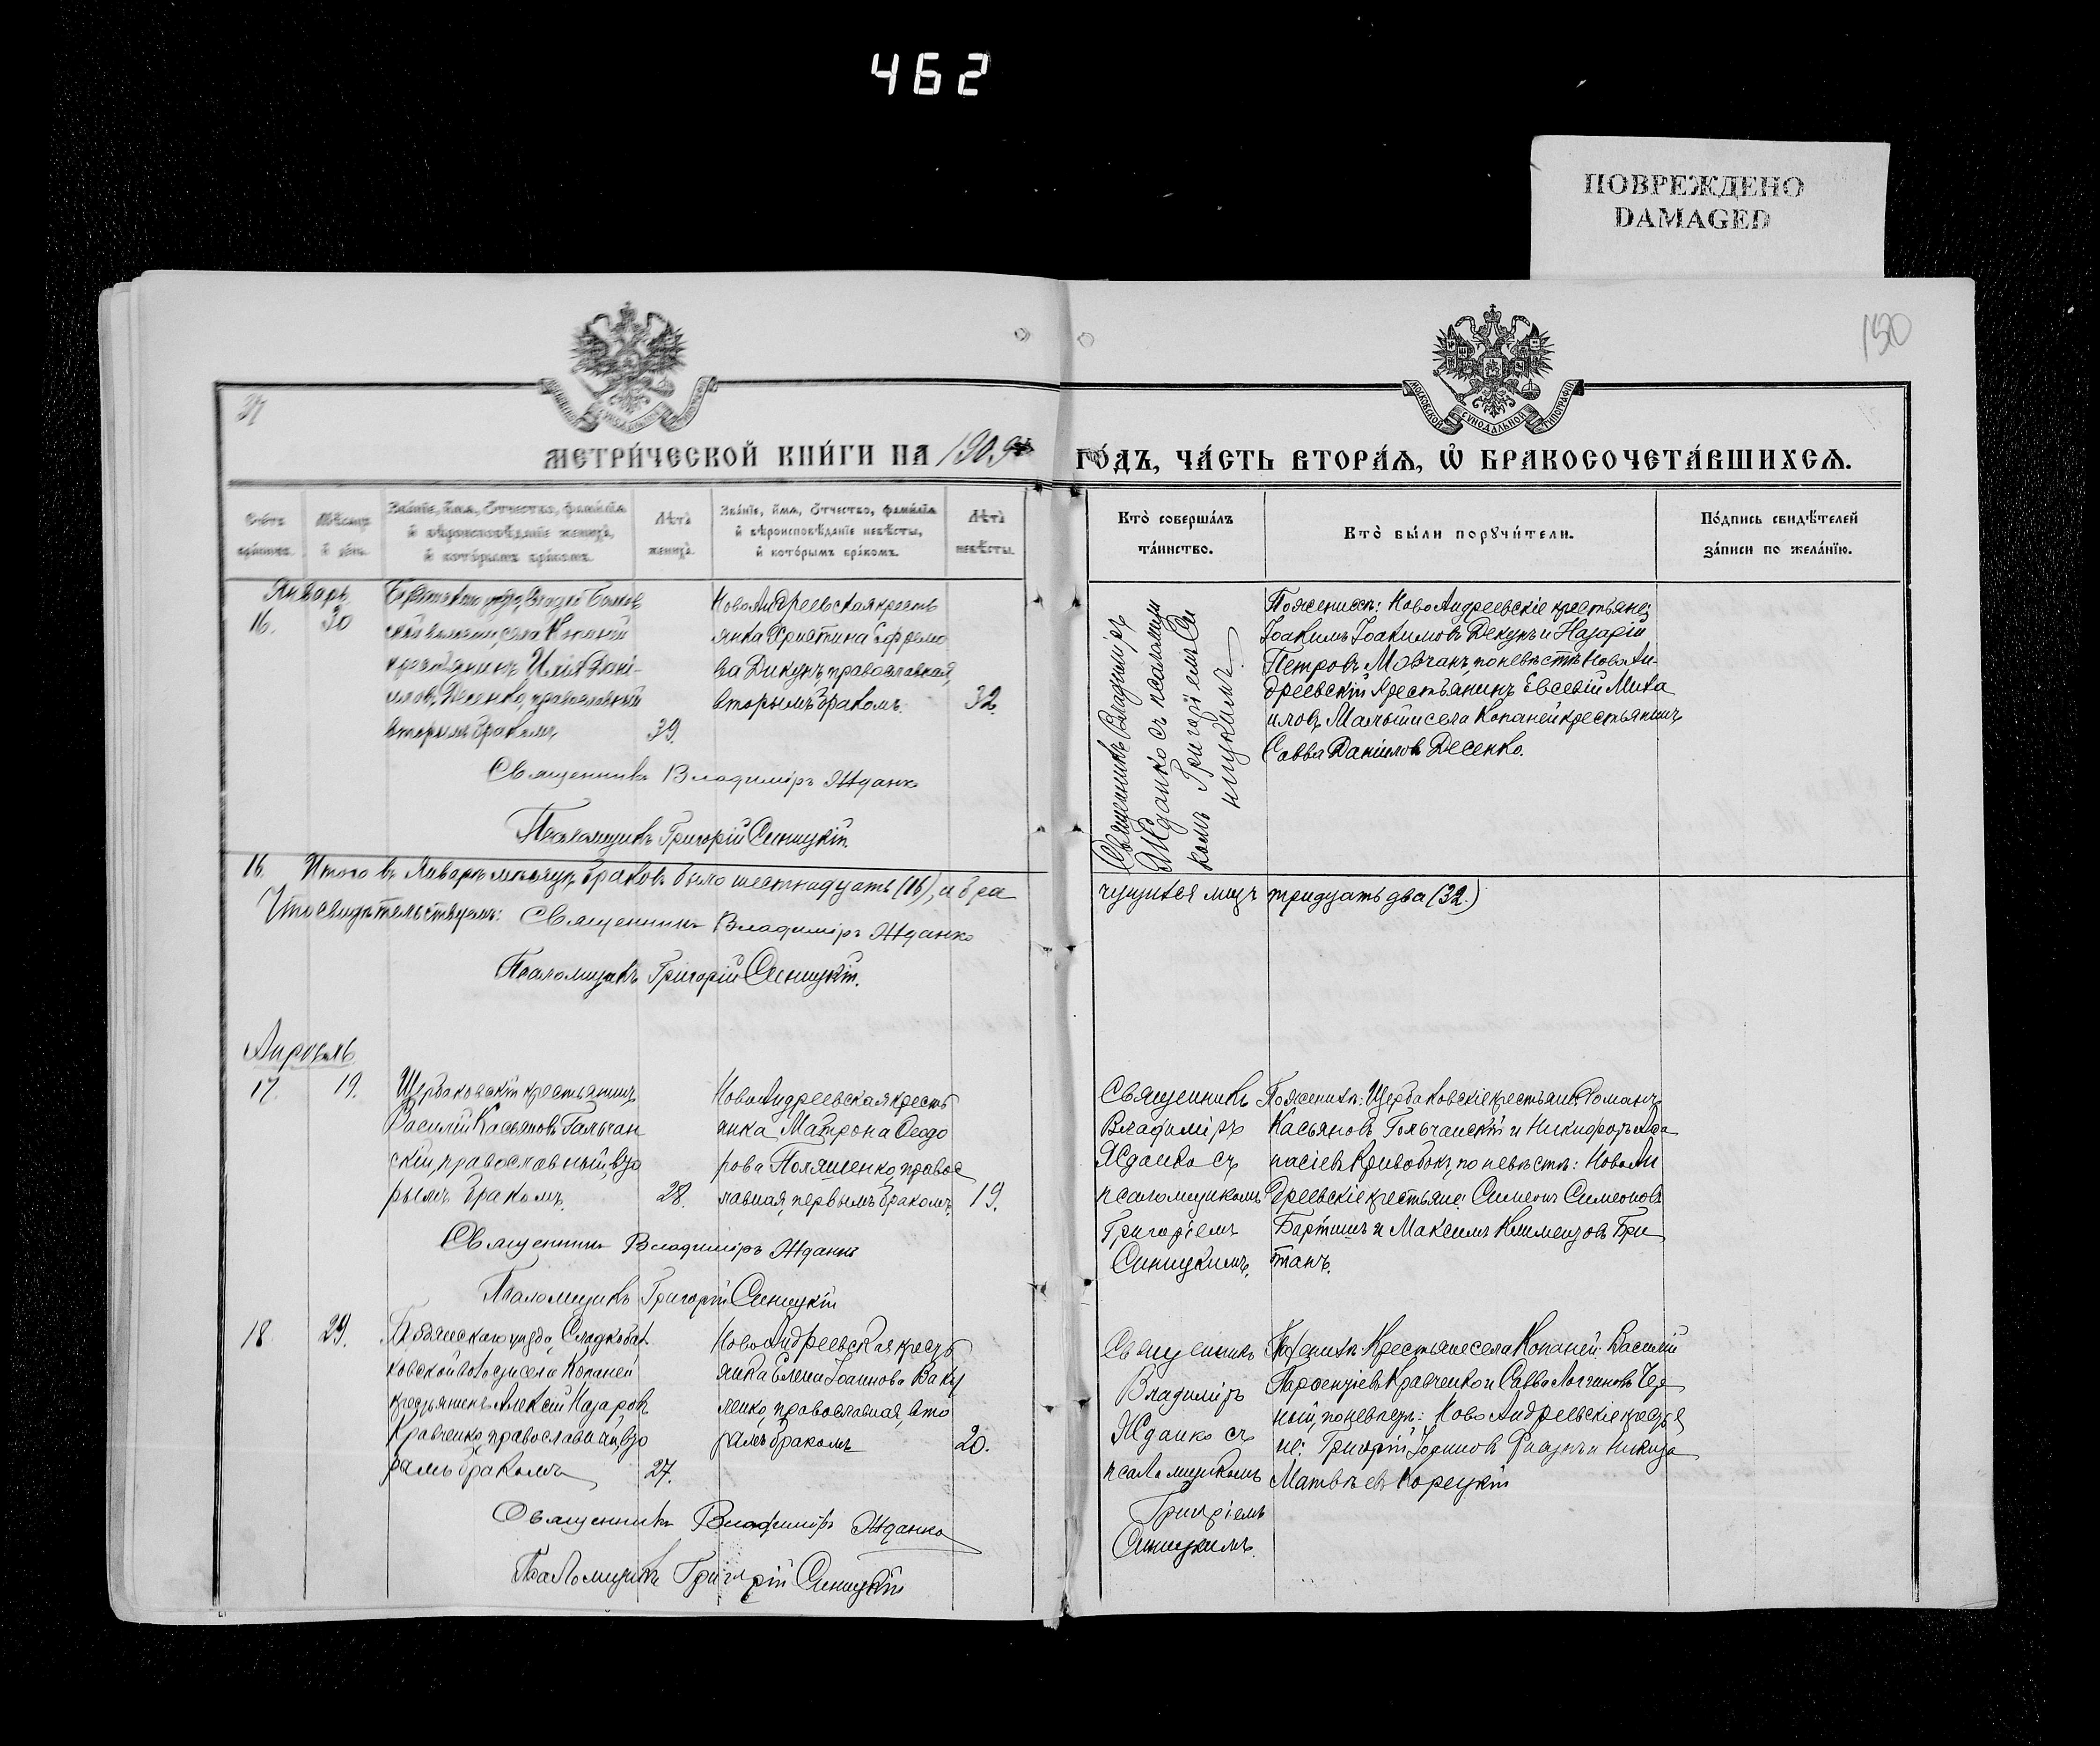 462
ПОВРЕЖДЕНО
DAMAGED
150
27
МОСКОВСКОЙ СѴНОДАЛЬНОЙ ТИПОГРАФІИ
МЕТРИ́ЧЕСКОЙ КНИ́ГИ НА 1909
ГО́ДЪ, ЧА́СТЬ ВТОРА́Ѧ, Ѽ БРАКОСОЧЕТА́ВШИХСѦ.
Счетъ браковъ.
Мѣсяцъ и день.
Зва́нїе, и́мѧ, ѻ́тчество, фами́лїѧ
и҆ вѣроисповѣ́данїе жениха̀,
и҆ кото́рымъ бра́комъ.
Лѣ́та жениха̀.
Зва́нїе, и́мѧ, ѻ́тчество, фами́лїѧ
и҆ вѣроисповѣ́данїе невѣ́сты,
и҆ кото́рымъ бра́комъ.
Лѣ́та невѣ́сты.
Кто̀ соверша́лъ
та́инство.
Кто̀ бы́ли порꙋчи́тели.
По́дпись свидѣ́телей
за́писи по жела́нїю.
Январь
16.
30
ской волости, села Копаней
крестьянинъ Илія Дані-
иловъ Десенко, православный
вторымъ бракомъ
39.
НовоАндреевская кресть
янка Христина Ефремо
ва Дикунъ, православная,
вторымъ бракомъ.
32.
Священникъ Владиміръ
Жданко съ псаломщи
комъ Григоріемъ Си
ницкимъ.
По женихѣ: НовоАндреевскіе крестьяне:
Іоакимъ Іоакимовъ Декунъ и Назарій
Петровъ Мовчанъ, по невѣстѣ НовоАн-
дреевскій крестьянинъ Евсевій Миха
иловъ Малышъ и села Копаней крестьянинъ
Савва Даніиловъ Десенко.
Священникъ Владиміръ Жданко
Псаломщикъ Григорій Синицкій
16. Итого въ Январѣ мѣсяцѣ браковъ было шестнадцать (16), а бра
чущихся лицъ тридцать два (32.)
Что свидѣтельствуемъ: Священникъ Владиміръ Жданко
Псаломщикъ Григорій Синицкій.
Апрѣль
17.
19.
Щербаковскій крестьянинъ
Василій Касьяновъ Гальчан
скій, православный, вто
рымъ бракомъ.
28.
НовоАндреевская кресть
янка Матрона Ѳеодо
рова Поляшенко, правос
лавная, первымъ бракомъ.
19.
Священникъ
Владиміръ
Жданко съ
псаломщикомъ
Григоріемъ
Синицкимъ.
По женихѣ: Щербаковскіе крестьяне: Романъ
Касьяновъ Гольчанскій и Никифоръ Аѳа
насіевъ Кривобокъ, по невѣстѣ: НовоАн
дреевскіе крестьяне: Симеонъ Симеоновъ
Бартишъ и Максимъ Климентовъ Бри
танъ.
Священникъ Владиміръ Жданко
Псаломщикъ Григорій Синицкій
18
29.
Бердянскаго уѣзда, Сладкобал
ковской волости села Копаней
крестьянинъ Алексій Назаровъ
Кравченко, православный, вто
рымъ бракомъ
27.
НовоАндреевская крест
янка Елена Іоаннова Ваку
ленко, православная, вто
рымъ бракомъ
20.
Священникъ
Владиміръ
Жданко съ
псаломщикомъ
Григоріемъ
Синицкимъ.
По женихѣ Крестьяне села Копаней: Василій
Парѳентіевъ Кравченко и Савва Логгиновъ Чер
ный, по невѣстѣ: НовоАндреевскіе крестья
не: Григорій и Никита
Матвѣевъ Корецкій
Священникъ Владиміръ Жданко
Псаломщикъ Григорій Синицкій